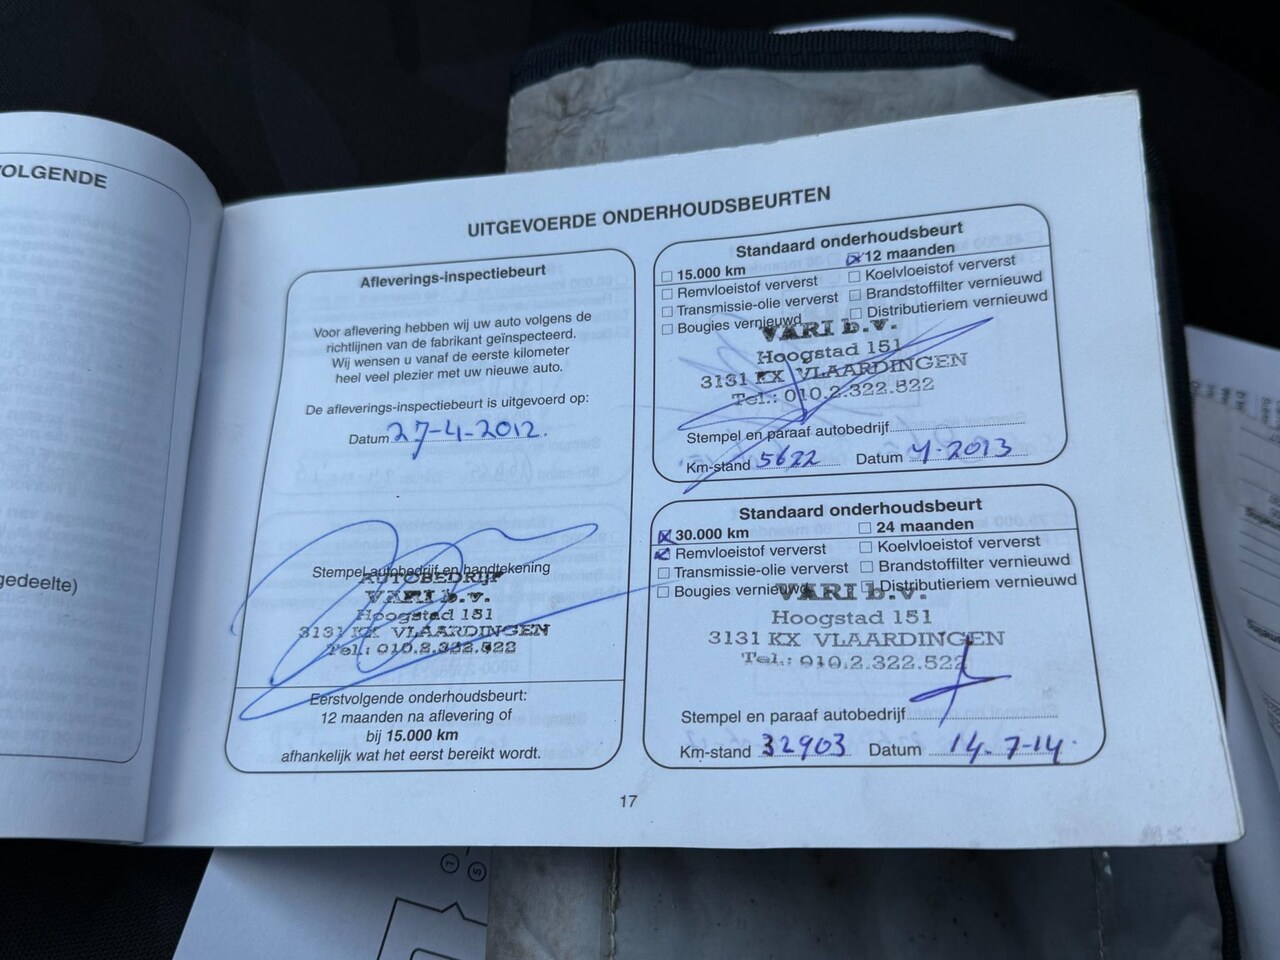 OLGENDE
gedeelte)
UITGEVOERDE ONDERHOUDSBEURTEN
Afleverings-inspectiebeurt
Voor aflevering hebben wij uw auto volgens de
richtlijnen van de fabrikant geïnspecteerd.
Wij wensen u vanaf de eerste kilometer
heel veel plezier met uw nieuwe auto.
De afleverings-inspectiebeurt is uitgevoerd op:
Datum 27-4-2012.
Stempel autobedrijf en handtekening
AUTOBEDRIJF
VARI b.v.
Hoogstad 151
3131 KX VLAARDINGEN
Tel.: 010.2.322.522
Eerstvolgende onderhoudsbeurt:
12 maanden na aflevering of
bij 15.000 km
afhankelijk wat het eerst bereikt wordt.
Standaard onderhoudsbeurt
15.000 km 12 maanden
Remvloeistof ververst Koelvloeistof ververst
Transmissie-olie ververst Brandstoffilter vernieuwd
Bougies vernieuwd Distributieriem vernieuwd
VARI b.v.
Hoogstad 151
3131 KX VLAARDINGEN
Tel.: 010.2.322.522
Stempel en paraaf autobedrijf
Km-stand 5622 Datum 4-2013
Standaard onderhoudsbeurt
30.000 km 24 maanden
Remvloeistof ververst Koelvloeistof ververst
Transmissie-olie ververst Brandstoffilter vernieuwd
Bougies vernieuwd Distributieriem vernieuwd
VARI b.v.
Hoogstad 151
3131 KX VLAARDINGEN
Tel.: 010.2.322.522
Stempel en paraaf autobedrijf
Km-stand 32903 Datum 14-7-14.
17